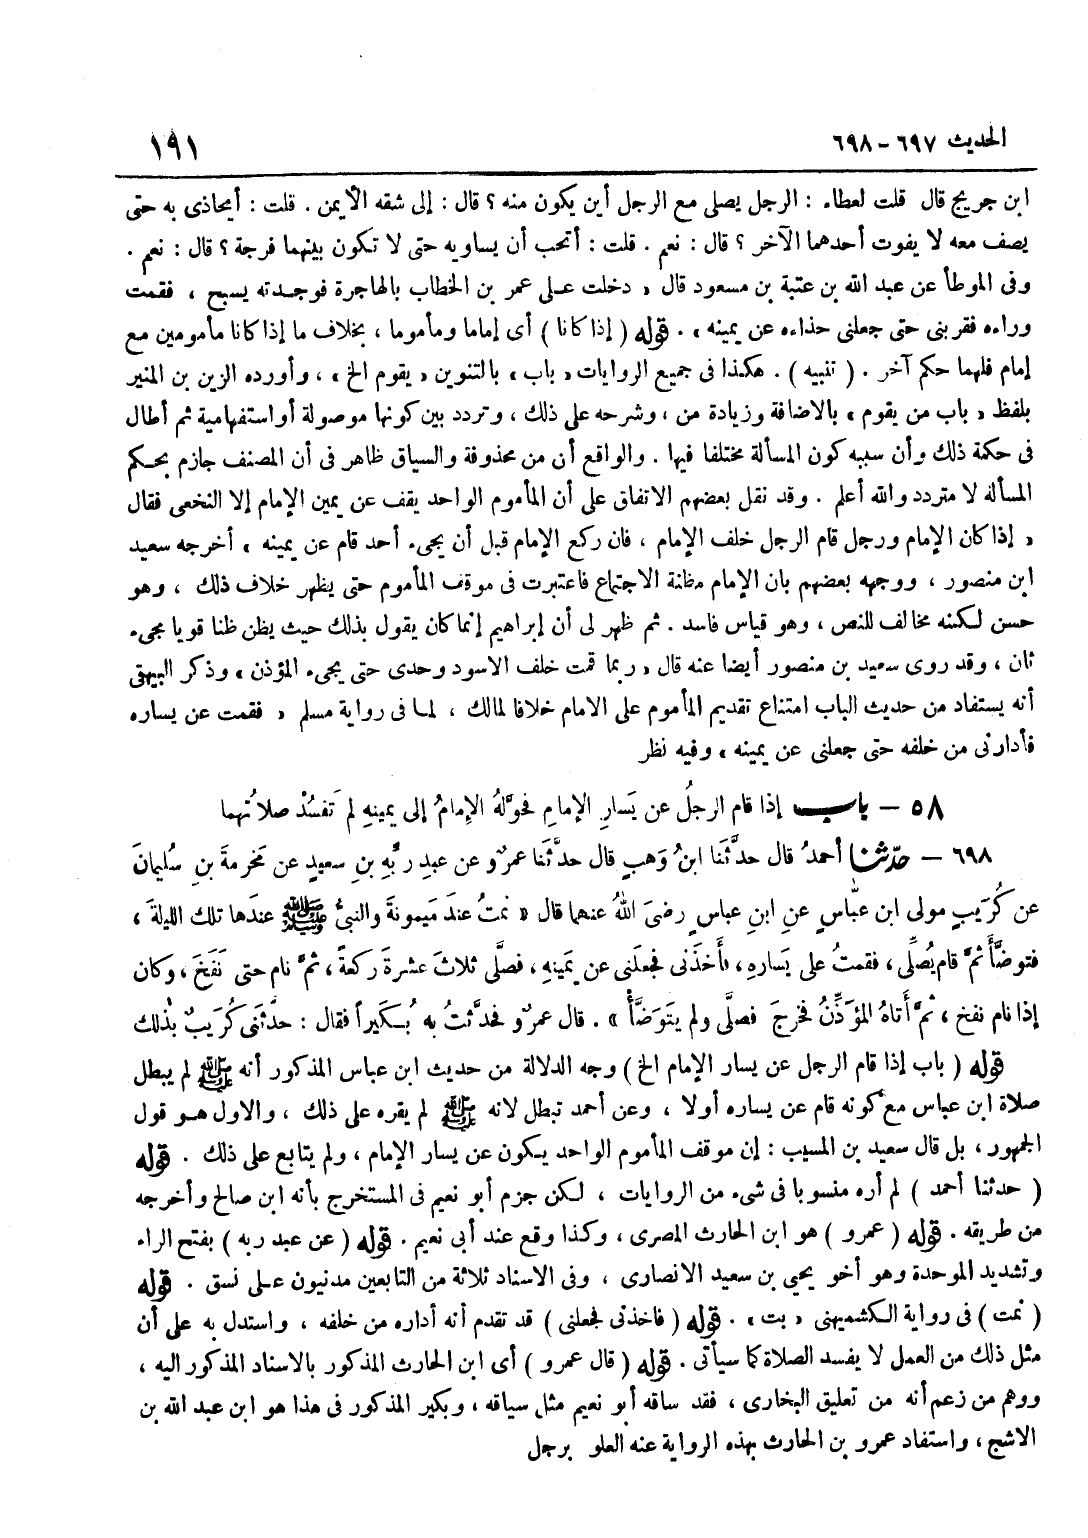 الحديث ٦٩٧ - ٦٩٨
١٩١
ابن جريج قال قلت لعطاء : الرجل يصلى مع الرجل أين يكون منه ؟ قال : إلى شقه الأيمن . قلت : أيحاذى به حتى
يصف معه لا يفوت أحدهما الآخر ؟ قال : نعم . قلت : أتحب أن يساويه حتى لا تكون بينهما فرجة ؟ قال : نعم .
وفى الموطأ عن عبد الله بن عتبة بن مسعود قال « دخلت على عمر بن الخطاب بالهاجرة فوجدته يسبح ، فقمت
وراءه فقربنى حتى جعلنى حذاءه عن يمينه » . قوله ( إذا كانا ) أى إماما ومأموما ، بخلاف ما إذا كانا مأمومين مع
إمام فلهما حكم آخر . ( تنبيه ) . هكذا فى جميع الروايات « باب » بالتنوين « يقوم الخ » ، وأورده الزين بن المنير
بلفظ « باب من يقوم » بالاضافة وزيادة من ، وشرحه على ذلك ، وتردد بين كونها موصولة أو استفهامية ثم أطال
فى حكمة ذلك وأن سببه كون المسألة مختلفا فيها . والواقع أن من محذوفة والسياق ظاهر فى أن المصنف جازم بحكم
المسألة لا متردد والله أعلم . وقد نقل بعضهم الاتفاق على أن المأموم الواحد يقف عن يمين الإمام إلا النخعى فقال
« إذا كان الإمام ورجل قام الرجل خلف الإمام ، فان ركع الإمام قبل أن يجىء أحد قام عن يمينه » أخرجه سعيد
ابن منصور ، ووجهه بعضهم بان الإمام مظنة الاجتماع فاعتبرت فى موقف المأموم حتى يظهر خلاف ذلك ، وهو
حسن لكنه مخالف للنص ، وهو قياس فاسد . ثم ظهر لى أن إبراهيم إنما كان يقول بذلك حيث يظن ظنا قويا مجىء
ثان ، وقد روى سعيد بن منصور أيضا عنه قال « ربما قمت خلف الاسود وحدى حتى يجىء المؤذن » وذكر البيهقى
أنه يستفاد من حديث الباب امتناع تقديم المأموم على الامام خلافا لمالك ، لما فى رواية مسلم « فقمت عن يساره
فأدارنى من خلفه حتى جعلنى عن يمينه » وفيه نظر
٥٨ - باب إذا قام الرجلُ عن يَسارِ الإمامِ فحوَّلهُ الإمامُ إلى يمينهِ لم تَفسُدْ صلاتُهما
٦٩٨ - حدّثنا أحمدُ قال حدَّثَنا ابنُ وَهبٍ قال حدَّثَنا عمرٌو عن عبدِ ربِّهِ بنِ سعيدٍ عن مَخرمةَ بنِ سُليمانَ
عن كُرَيبٍ مولى ابن عبّاسٍ عنِ ابنِ عباسٍ رضىَ اللهُ عنهما قال « نمتُ عندَ مَيمونةَ والنبىُّ ﷺ عندَها تلكَ الليلةَ ،
فتوضَّأَ ثمَّ قام يُصلِّى ، فقمتُ على يَسارهِ ، فأخذَنى فجعلَنى عن يَمينهِ ، فصلَّى ثلاثَ عشرةَ ركعةً ، ثمَّ نام حتى نَفَخَ ، وكان
إذا نام نفخ ، ثمَّ أتاهُ المؤذِّنُ فخرجَ فصلَّى ولم يتَوَضَّأْ » . قال عمرٌو فحدَّثتُ به بُكَيراً فقال : حدَّثَنى كُرَيبٌ بذلك
قوله ( باب إذا قام الرجل عن يسار الإمام الخ ) وجه الدلالة من حديث ابن عباس المذكور أنه ﷺ لم يبطل
صلاة ابن عباس مع كونه قام عن يساره أولا ، وعن أحمد تبطل لانه ﷺ لم يقره على ذلك ، والاول هو قول
الجمهور ، بل قال سعيد بن المسيب : إن موقف المأموم الواحد يكون عن يسار الإمام ، ولم يتابع على ذلك . قوله
( حدثنا أحمد ) لم أره منسوبا فى شىء من الروايات ، لكن جزم أبو نعيم فى المستخرج بأنه ابن صالح وأخرجه
من طريقه . قوله ( عمرو ) هو ابن الحارث المصرى ، وكذا وقع عند أبى نعيم . قوله ( عن عبد ربه ) بفتح الراء
وتشديد الموحدة وهو أخو يحيى بن سعيد الانصارى ، وفى الاسناد ثلاثة من التابعين مدنيون على نسق . قوله
( نمت ) فى رواية الكشميهنى « بت » . قوله ( فاخذنى فجعلنى ) قد تقدم أنه أداره من خلفه ، واستدل به على أن
مثل ذلك من العمل لا يفسد الصلاة كما سيأتى . قوله ( قال عمرو ) أى ابن الحارث المذكور بالاسناد المذكور اليه ،
ووهم من زعم أنه من تعليق البخارى ، فقد ساقه أبو نعيم مثل سياقه ، وبكير المذكور فى هذا هو ابن عبد الله بن
الاشج ، واستفاد عمرو بن الحارث بهذه الرواية عنه العلو برجل